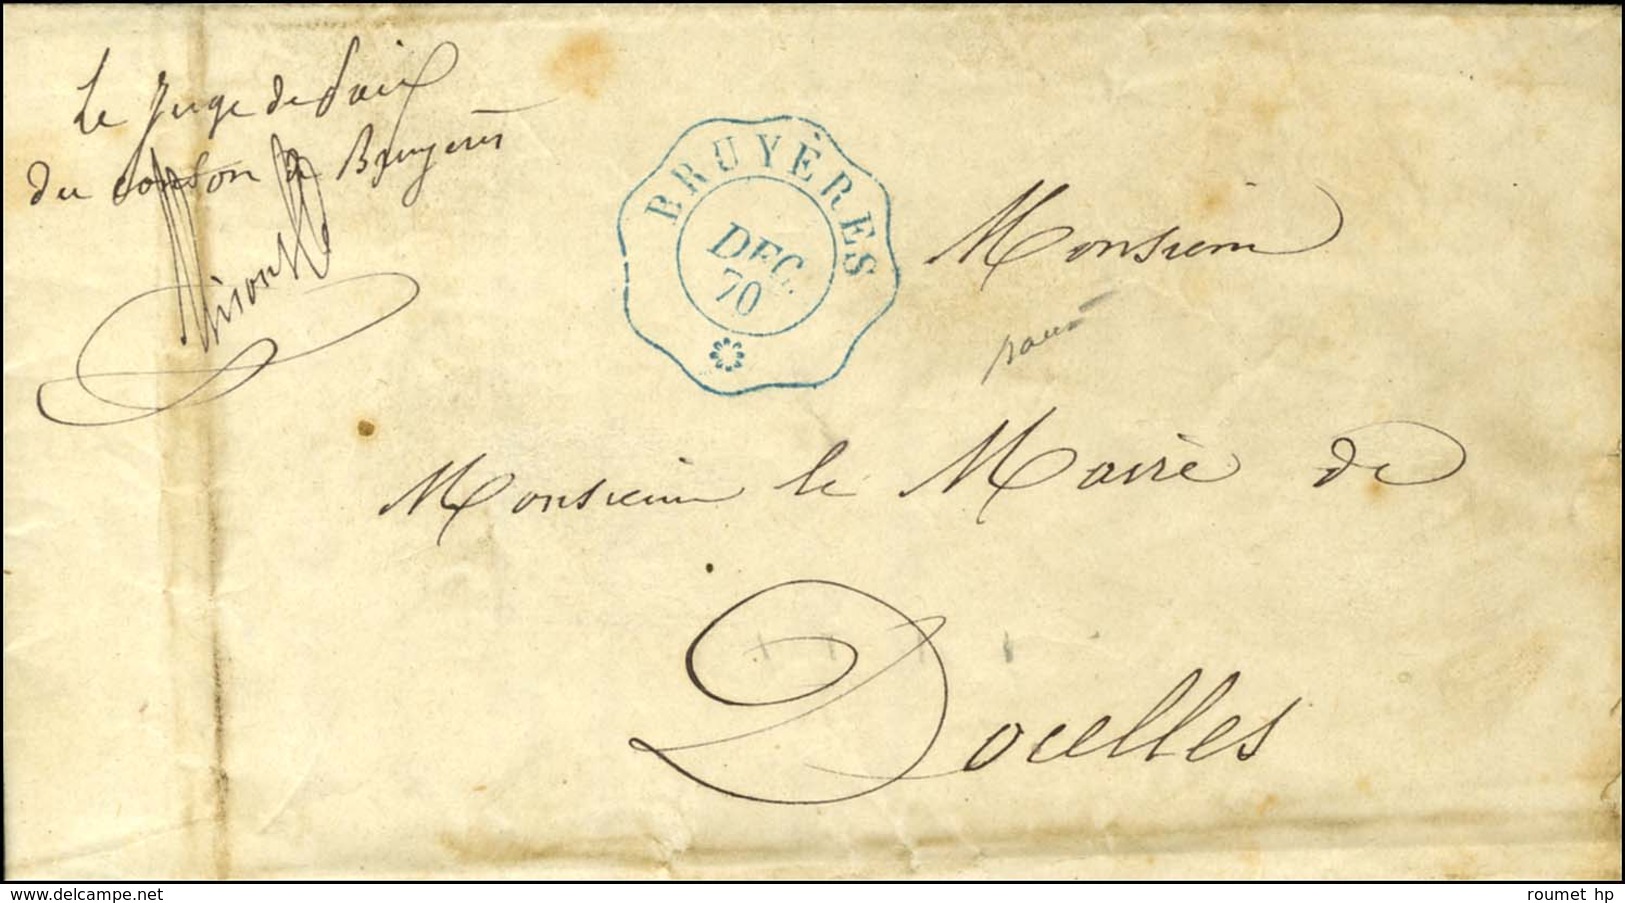 Le Juge de Paix
du canton de Bruyères
BRUYÈRES
DEC.
70
Monsieur
Monsieur le Maire de
Docelles
www.delcampe.net
roumet hp